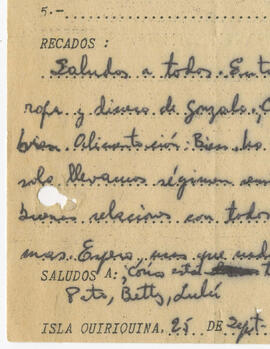 5.-
RECADOS:
Saludos a todos.
ropa y dinero de Gonzalo,
bien. Alimentación: Bien.
solo llevamos régimen
buenas relaciones con todos
mas. Espero mas que nada
SALUDOS A: ¿Cómo está
Pete, Betty, Lulú
ISLA QUIRIQUINA, 25 DE Sept.